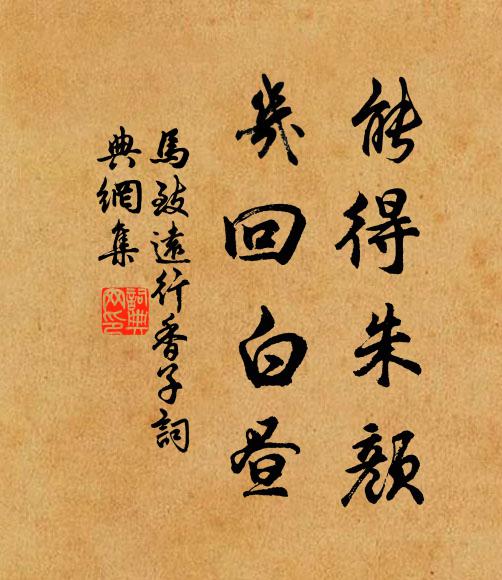 能得朱顏
幾回白昼
馬致遠行香子詞
典網集
詞典
网印